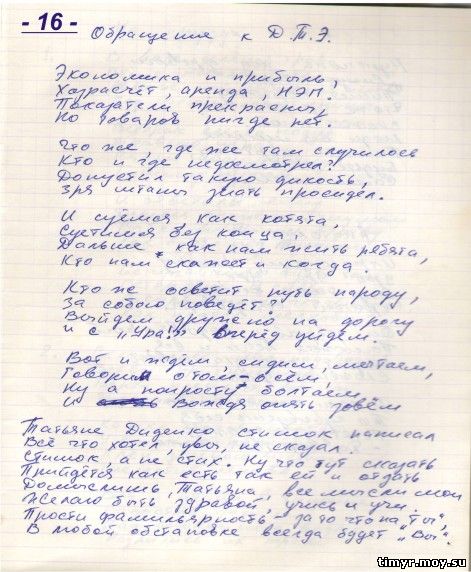 - 16 -
Обращение к Д.Т.Э.
Экономика и прибыль,
Хозрасчёт, аренда, НЭП.
Показатели прекрасны,
Но товаров нигде нет.
Что же, где же там случилось
Кто и где недосмотрел?
Допустил такую дикость,
Зря штаны знать просидел.
И суёмся, как котята,
Суетимся без конца.
Дальше как нам жить ребята,
Кто нам скажет и когда.
Кто же осветит путь народу,
За собою поведёт?
Выйдем дружно на дорогу
и с „Ура!" вперёд уйдём.
Вот и ждём, сидим, мечтаем,
Говорим о том-о сём,
Ну а попросту болтаем,
И вождя опять зовём
Татьяне Диденко стишок написал
Всё что хотел, увы, не сказал.
Стишок, а не стих. Ну что тут сказать
Прийдётся как есть так ей и отдать
Домыслишь, Татьяна, все мысли мои
Желаю быть здравой, учись и учи.
Прости фамильярность за то что на „ты",
В любой обстановке всегда будет „Вы".
timyr.moy.su